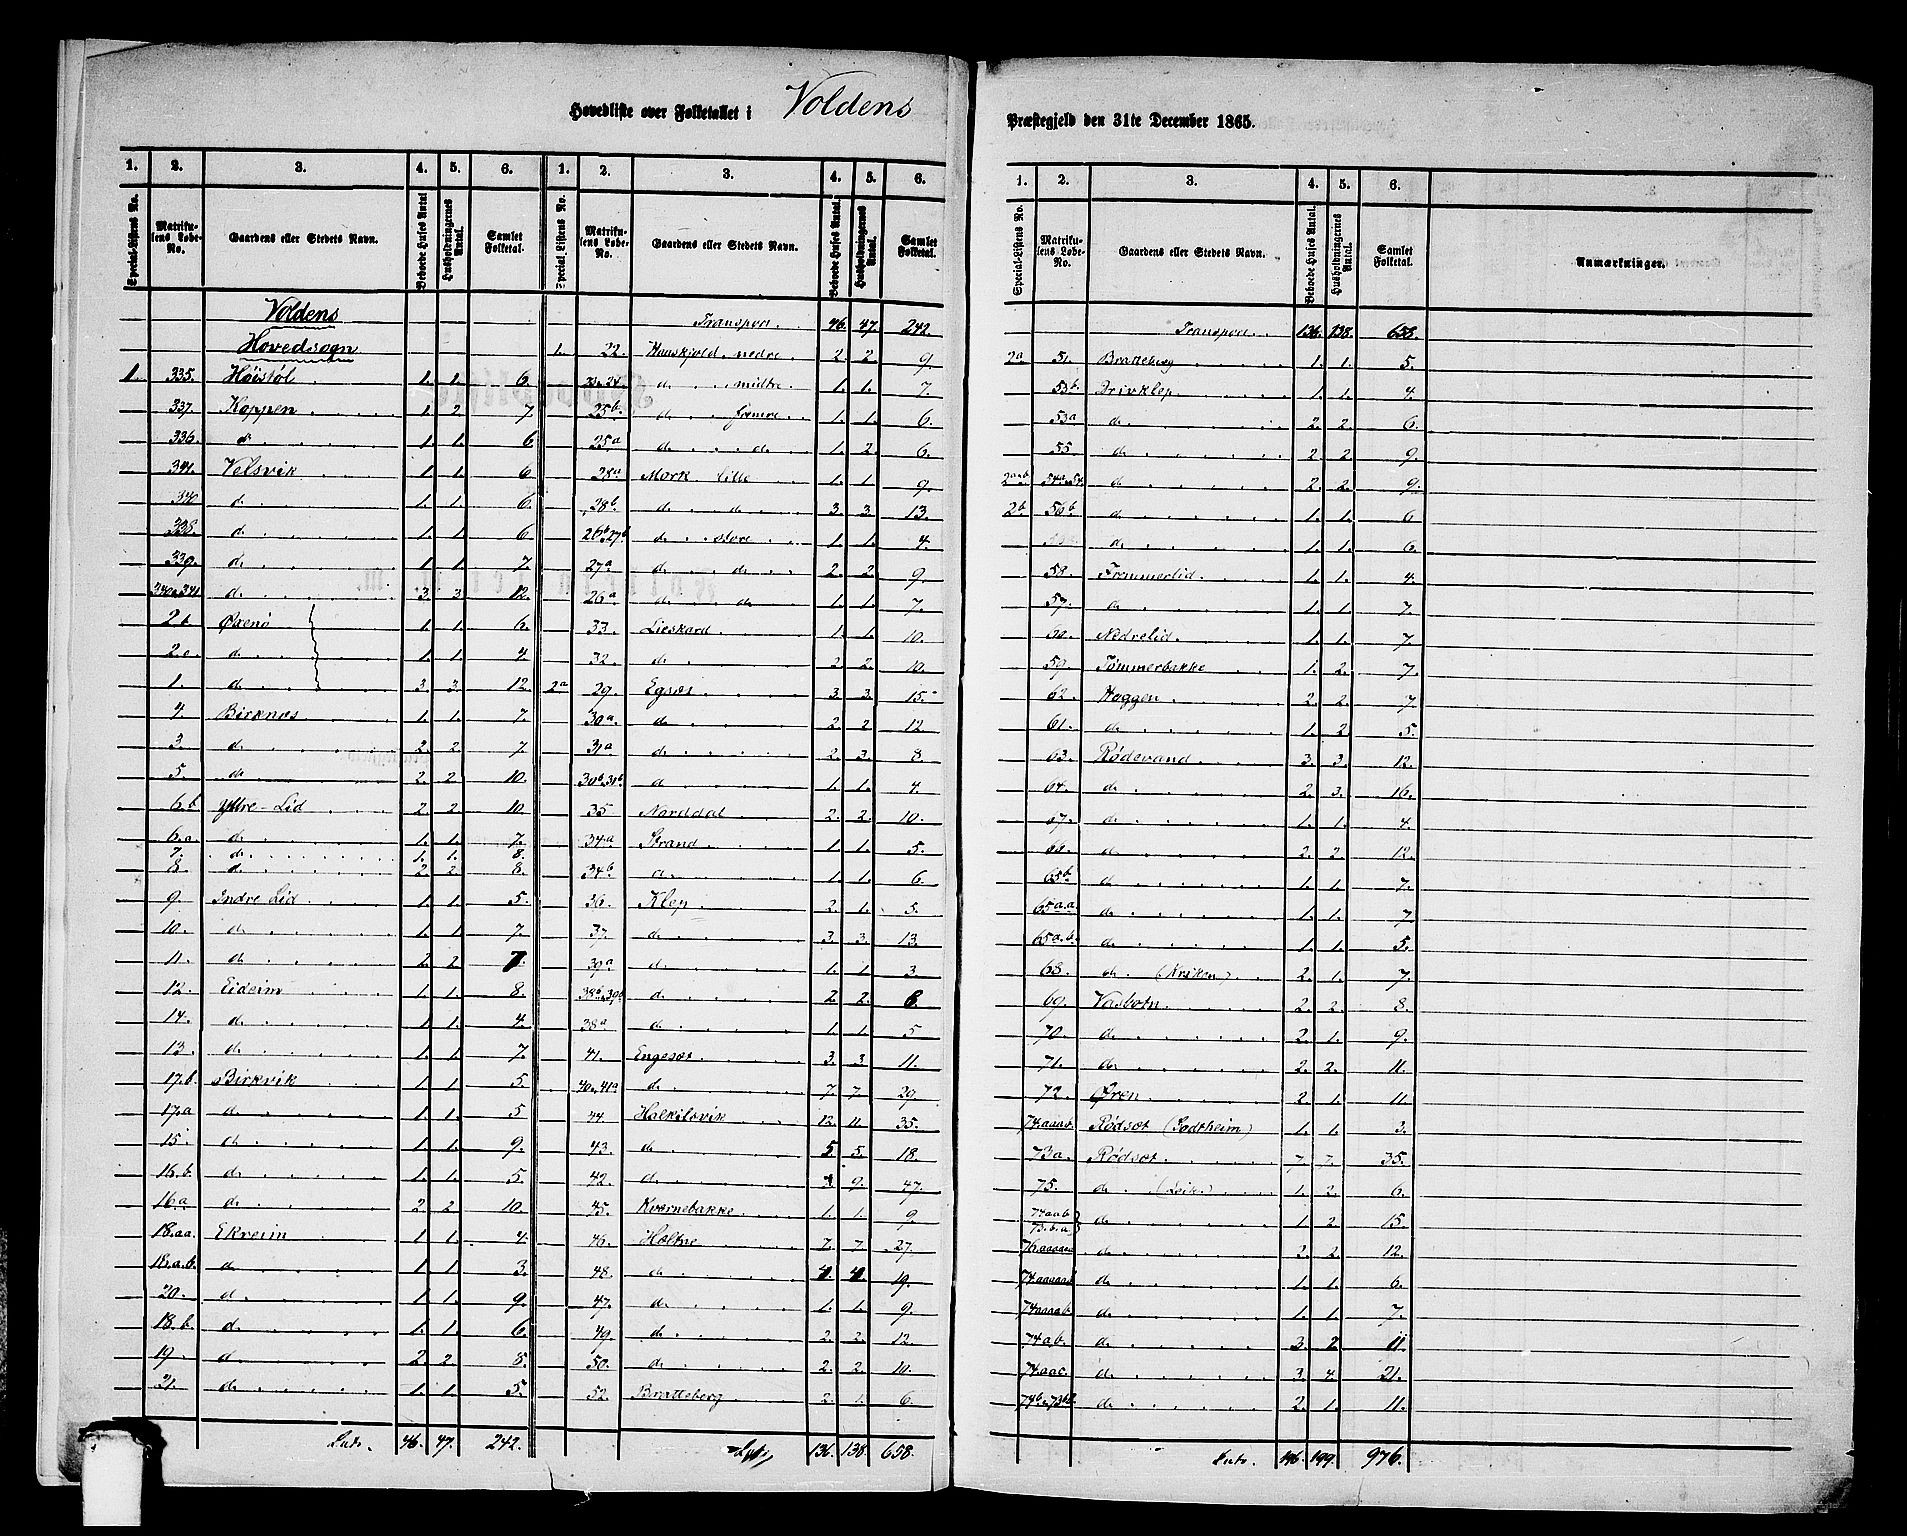 Hovedliste over Folketallet i Voldens
Præstegjeld den 31te December 1865.
1. 2. 3. 4. 5. 6. 1. 2. 3. 4. 5. 6.
Special-Listens No. Matrikulens Løbe-No. Gaardens eller Stedets Navn. Beboede Huses Antal Husholdningernes Antal. Samlet Folketal. Special Listens No. Matrikulens Løbe-No. Gaardens eller Stedets Navn. Beboede Huses Antal. Husholdningernes Antal. Samlet Folketal.
Voldens
Hovedsogn
1. 335. Höistöl 1. 1. 6.
337. Koppen 1. 2. 7
336. d. 1. 1. 6
341. Velsvik 1. 1. 6
340 d. 1. 1. 6.
338. d. 1. 1. 6
339. d. 1. 1. 7.
340a341 d. 3. 3 12.
2b Øxenø 1. 1. 6.
2.a d. 1. 1. 4.
1. d. 3. 3. 12
4. Birknes 1. 1. 7.
3. d. 2. 2. 7.
5. d. 2. 2 10.
6.b Yttre-Lid 2. 2 10.
6.a d. 1. 1. 7.
7. d. 1. 1. 8.
8. d. 2 2 8.
9. Indre Lid 1. 1. 5.
10. d. 1. 1. 7.
11. d. 2. 2 7.
12. Eideim 1. 1. 8.
14. d. 1. 1. 4.
13. d. 1. 1. 7.
17.b. Birkvik 1. 1. 5.
17.a d. 1. 1. 5
15. d. 1. 1. 9.
16.b. d. 1. 1. 5.
16a d. 2 2 10.
18.aa. Ekreim 1. 1. 4.
18.a.b. d. 1. 1. 3.
20. d. 1. 1. 9.
18.b. d. 1. 1. 6.
19. d. 2. 2. 8.
21. d. 1. 1. 5.
Lats. 46. 47. 242.
Transport. 46. 47. 242
1. 22. Haaskjold nedre 2 2. 9.
23a24. d. midtre 1. 1. 7.
25b. d. fremre 1. 1. 6.
25a d. d. 1. 2. 6.
28a Mork Lille 1. 1 9.
28b d. d. 3. 3. 13.
26b27b d. store 1. 1. 4.
27a d. d. 2. 2. 9.
26a d. d. 1. 1. 7.
33. Lieskard 1. 1. 10.
32. d. 2. 2. 10.
2a 29. Egset 3. 3. 15
30a. d. 2. 2 12
31a d. 2. 3. 8
30b31b d. 1. 1. 4
35 Norddal 2. 2. 10.
34a Strand 1. 1. 5.
34b d. 1. 1. 6.
36. Klep 2. 1. 5.
37. d. 3. 3. 13.
39a d. 1. 1 3.
38b39b d. 2. 2. 6.
38a d. 1. 1. 5
41. Engeset 3. 3 11.
40a41a d. 7. 7. 29.
44. Halkilsvik 12. 11. 35.
43. d. 5 5. 18.
42. d. 9. 47.
45. Kvernebakke 1. 1. 9.
46. Holtne 7. 7. 27.
48. d. 4. 4. 19.
47. d. 1. 1. 9.
49. d. 2. 2. 12.
50. d. 2. 2. 10.
52. Bratteberg 2. 1. 6.
Lats, 136. 138. 658.
1. 2. 3. 4. 5. 6.
Special-Listens No. Matrikulens Løbe-No. Gaardens eller Stedets Navn. Beboede Huses Antal. Husholdningernes Antal. Samlet Folketal. Anmærkninger.
Transport. 136. 138. 658.
2a 51. Bratteberg 1. 1. 5.
53b Drivklep 1. 1. 4.
53a d. 2. 2. 6.
55 d. 2 2 9.
2aab d. 2. 2. 9.
2b 56b d. 1. 1. 6
d. 1. 1. 6.
58. Fremmerlid 1. 1. 4.
57. d. 1. 1. 7.
60. Nedrelid 1. 1. 7.
59. Tømmerbakke 1. 2. 7.
62. Haggen 2. 2. 7
61. d. 1. 2 5.
63. Rödevand 3. 3. 12.
64. d. 2. 3. 16.
67. d. 1. 1. 4.
66. d. 2. 2. 12.
65b d. 1. 1. 7.
65a.a. d. 1. 1. 7
65a.b. d. 1. 1. 5.
68. d. (Kriken) 2. 1. 7.
69. Vasbotn 2. 2 8.
70. d. 2. 1. 9.
71. d. 2 2. 11.
72. Øren 2. 1. 11.
74.aaaa. Rødset (Godtheim) 1. 1. 3.
73a. Rödset 7. 7. 35.
75. d. 1. 2. 6.
74aab
73.b.a. d. 1 2 15
d. 2. 2. 12.
d. 1. 1. 6.
74aaab. d. 1. 1. 7.
74ab. d. 3. 2 11
74.aac. d. 3. 4 21.
d. 2. 1. 11.
Lats. 196. 199. 976.